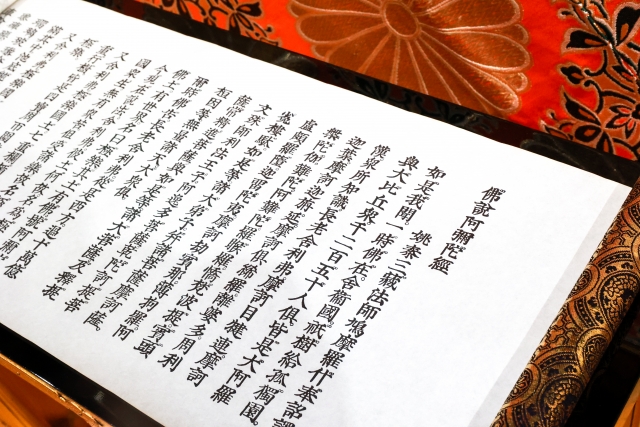 佛說阿彌陀經
姚秦三藏法師鳩摩羅什奉詔譯
如是我聞一時佛在舍衛國祇樹給孤獨園
與大比丘衆千二百五十人俱皆是大阿羅
漢衆所知識長老舍利弗摩訶目犍連摩訶
迦葉摩訶迦旃延摩訶俱絺羅離婆多周利
槃陀伽難陀阿難陀羅睺羅憍梵波提賓頭
盧頗羅墮迦留陀夷摩訶劫賓那薄拘羅阿
㝹樓馱如是等諸大弟子幷諸菩薩摩訶薩
文殊師利法王子阿逸多菩薩乾陀訶提菩
薩常精進菩薩與如是等諸大菩薩及釋提
桓因等無量諸天大衆俱
爾時佛告長老舍利弗從是西方過十萬億
佛土有世界名曰極樂其土有佛號阿彌陀
今現在說法舍利弗彼土何故名爲極樂其
國衆生無有衆苦但受諸樂故名極樂
又舍利弗極樂國土七重欄